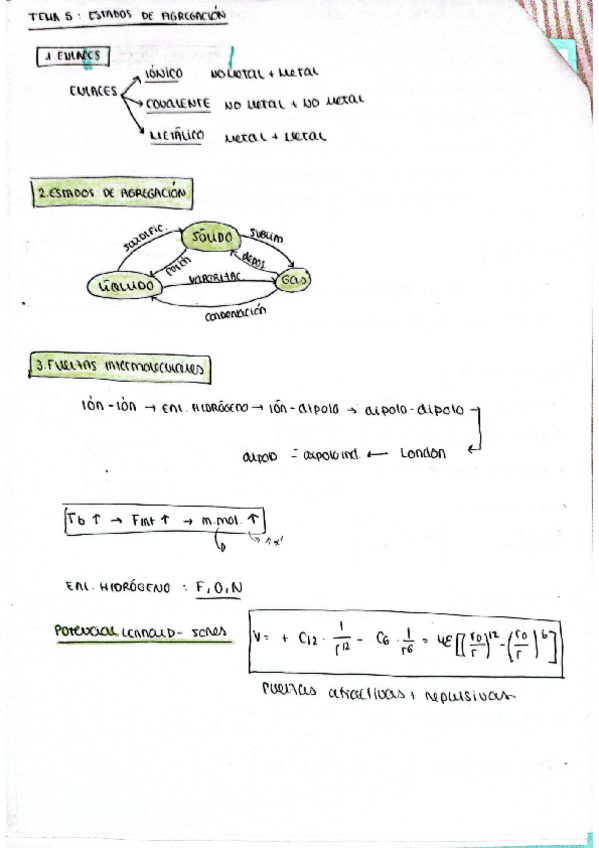 TEMA 5: ESTADOS DE AGREGACIÓN
1. ENLACES
ENLACES
IÓNICO NO METAL + METAL
COVALENTE NO METAL + NO METAL
METÁLICO METAL + METAL
2. ESTADOS DE AGREGACIÓN
SOLIDIFIC.
SÓLIDO
SUBLIM.
FUSIÓN
DEPOS.
LÍQUIDO
VAPORIZAC.
GAS
CONDENACIÓN
3. FUERZAS intermoleculares
IÓN-IÓN → ENL. HIDRÓGENO → IÓN-dipolo → dipolo-dipolo
dipolo - dipolo ind. ← London
Tb ↑ → Fint ↑ → m.mol. ↑
ENL. HIDRÓGENO : F, O, N
POTENCIAL LENNARD-JONES
V = + C12 · 1/r^12 - C6 · 1/r^6 = 4E[(r0/r)^12 - (r0/r)^6]
FUERZAS atractivas y repulsivas